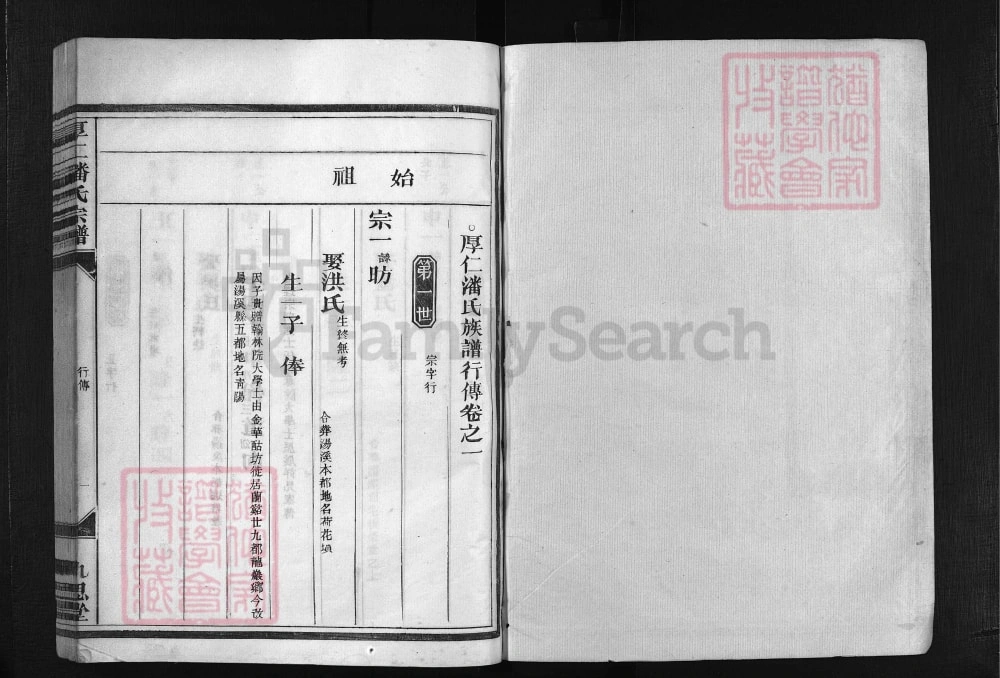 猶他家
譜學會
持藏
始祖
厚仁潘氏族譜行傳卷之一
第一世
宗字行
宗一諱昉
娶洪氏生終無考
合葬湯溪本都地名荷花塤
生一子俸
因子貴贈翰林院大學士由金華酤坊徙居蘭谿廿九都龍巖鄉今改
屬湯溪縣五都地名靑陽
厚仁潘氏宗譜
行傳
一
九思堂
猶他家
譜學會
持藏
FamilySearch